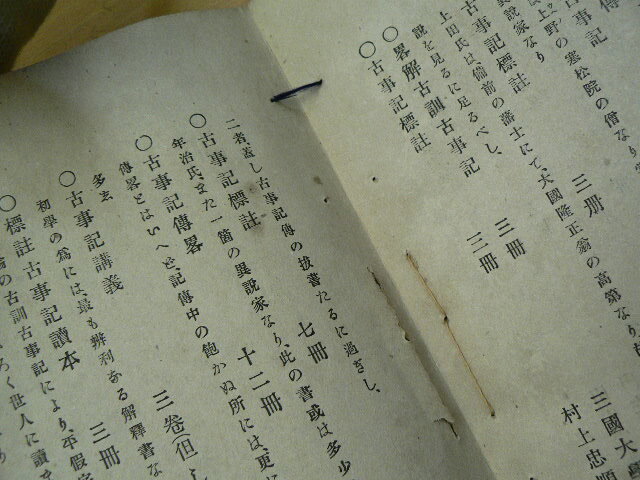 事記 三册
上野の寒松院の僧なり
民說家なり
古事記標註 三冊
上田氏は、備前の藩士にて、大國隆正翁の高第なり
說を見るに足るべし、
〇畧解古訓古事記 三冊 三國大
〇古事記標註 村上忠順
二者、蓋し古事記傳の拔書たるに過ぎし、
〇古事記標註 七冊
年治氏、また一箇の異說家なり、此の書或は多少
〇古事記傳畧 十二冊
傳畧とはいへど、記傳中の飽かぬ所には、更
多ゑ
〇古事記講義 三卷(但し
初學の爲には最も辨利なる解釋書な
〇標註古事記讀本 三冊
の古訓古事記により、平假
ろく世人に讀